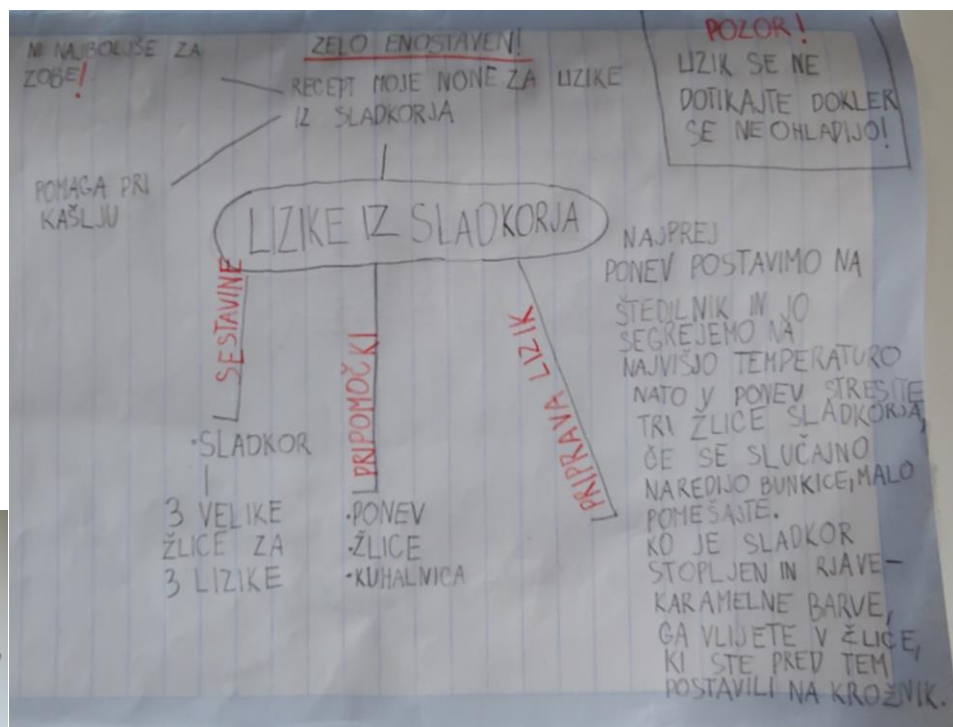 NI NAJBOLJŠE ZA
ZOBE!
ZELO ENOSTAVEN!
RECEPT MOJE NONE ZA LIZIKE
IZ SLADKORJA
POZOR!
LIZIK SE NE
DOTIKAJTE DOKLER
SE NE OHLADIJO!
POMAGA PRI
KAŠLJU
LIZIKE IZ SLADKORJA
SESTAVINE
•SLADKOR
3 VELIKE
ŽLICE ZA
3 LIZIKE
PRIPOMOČKI
•PONEV
•ŽLICE
•KUHALNICA
PRIPRAVA LIZIK
NAJPREJ
PONEV POSTAVIMO NA
ŠTEDILNIK IN JO
SEGREJEMO NA
NAJVIŠJO TEMPERATURO
NATO V PONEV STRESITE
TRI ŽLICE SLADKORJA,
ČE SE SLUČAJNO
NAREDIJO BUNKICE, MALO
POMEŠAJTE.
KO JE SLADKOR
STOPLJEN IN RJAVE-
KARAMELNE BARVE,
GA VLIJETE V ŽLICE,
KI STE PRED TEM
POSTAVILI NA KROŽNIK.